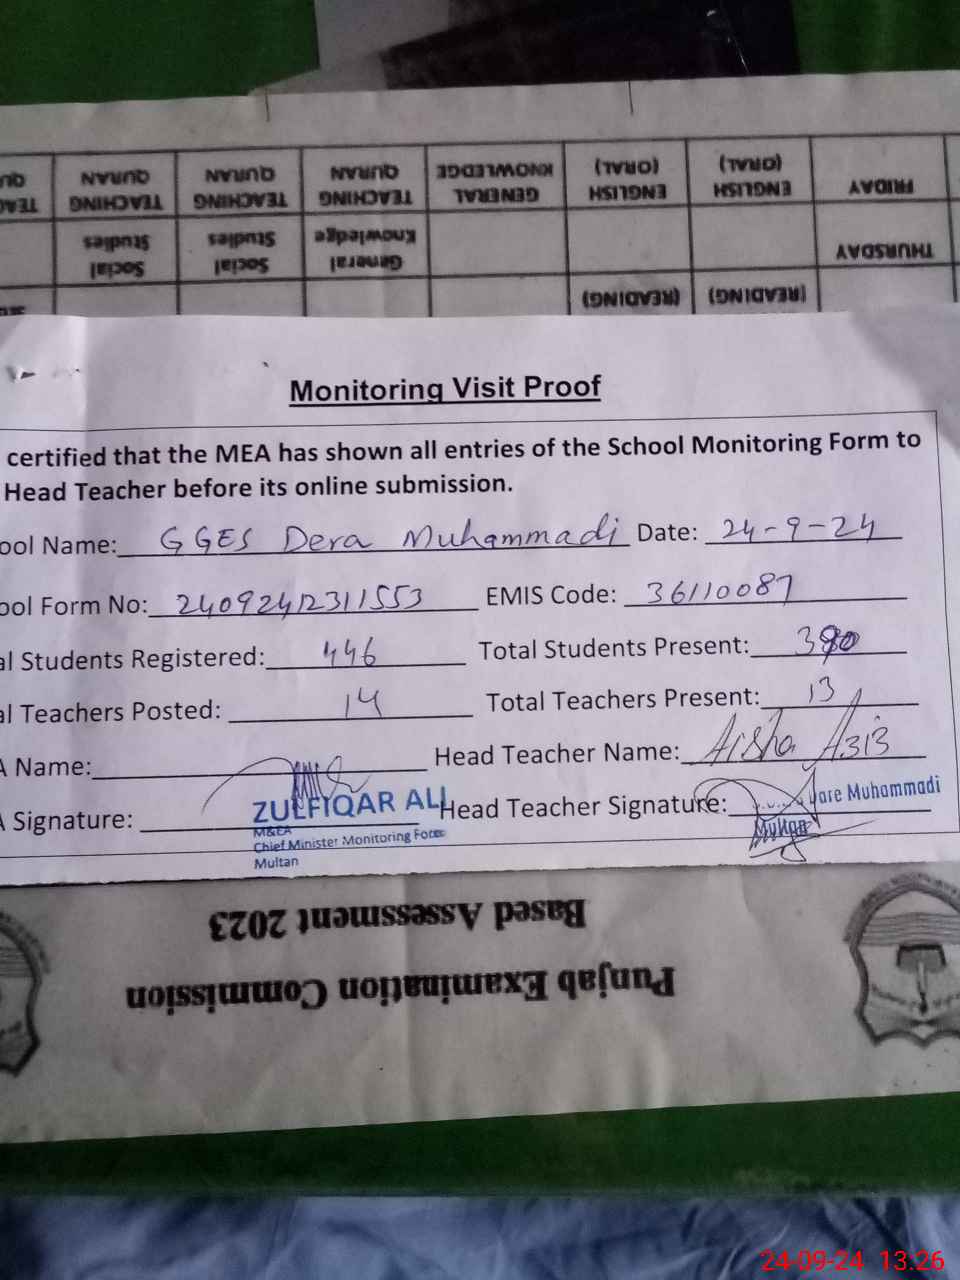 FRIDAY
ENGLISH (ORAL)
ENGLISH (ORAL)
GENERAL KNOWLEDGE
TEACHING QURAN
TEACHING QURAN
TEACHING QURAN
THURSDAY
General Knowledge
Social Studies
Social Studies
(READING)
(READING)
Monitoring Visit Proof
certified that the MEA has shown all entries of the School Monitoring Form to
Head Teacher before its online submission.
ool Name: GGES Dera Muhammadi Date: 24-9-24
ool Form No: 24092412311553 EMIS Code: 36110087
al Students Registered: 446 Total Students Present:
al Teachers Posted: 14 Total Teachers Present: 13
A Name: Head Teacher Name: Aisha Aziz
A Signature: Head Teacher Signature:
ZULFIQAR ALI
M&EA
Chief Minister Monitoring Force
Multan
Muhammadi
Multan
Punjab Examination Commission
Based Assessment 2023
24-09-24 13:26